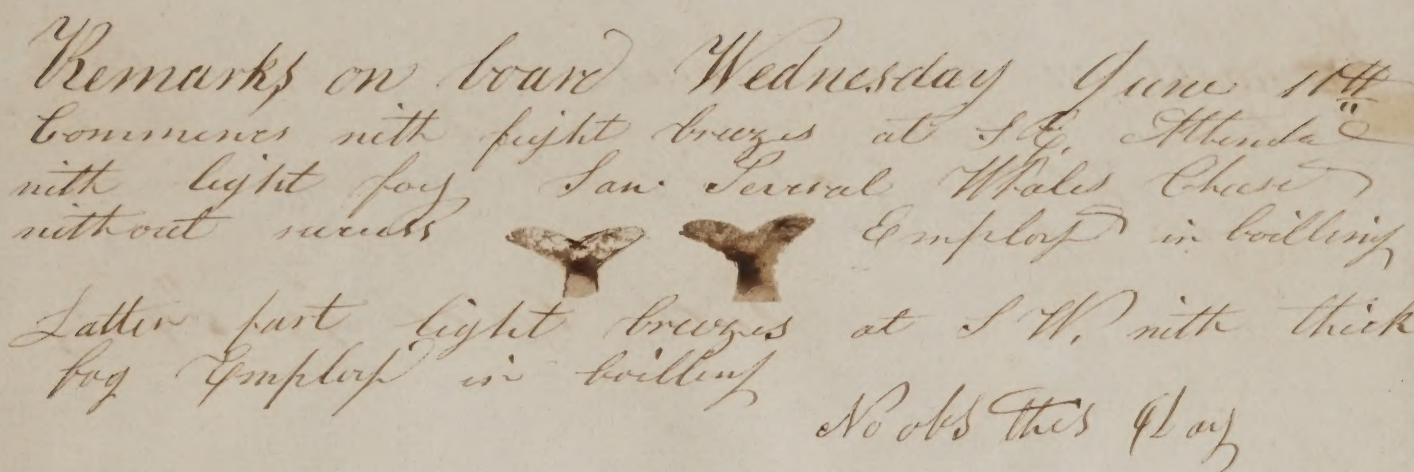 Remarks on board Wednesday June 11th
Commences with light breezes at S.E. Attended
with light fog Saw Several Whales Chased
without success Employd in boilling
Latter part light breezes at S W. with thick
fog Employd in boilling
No obs this Day